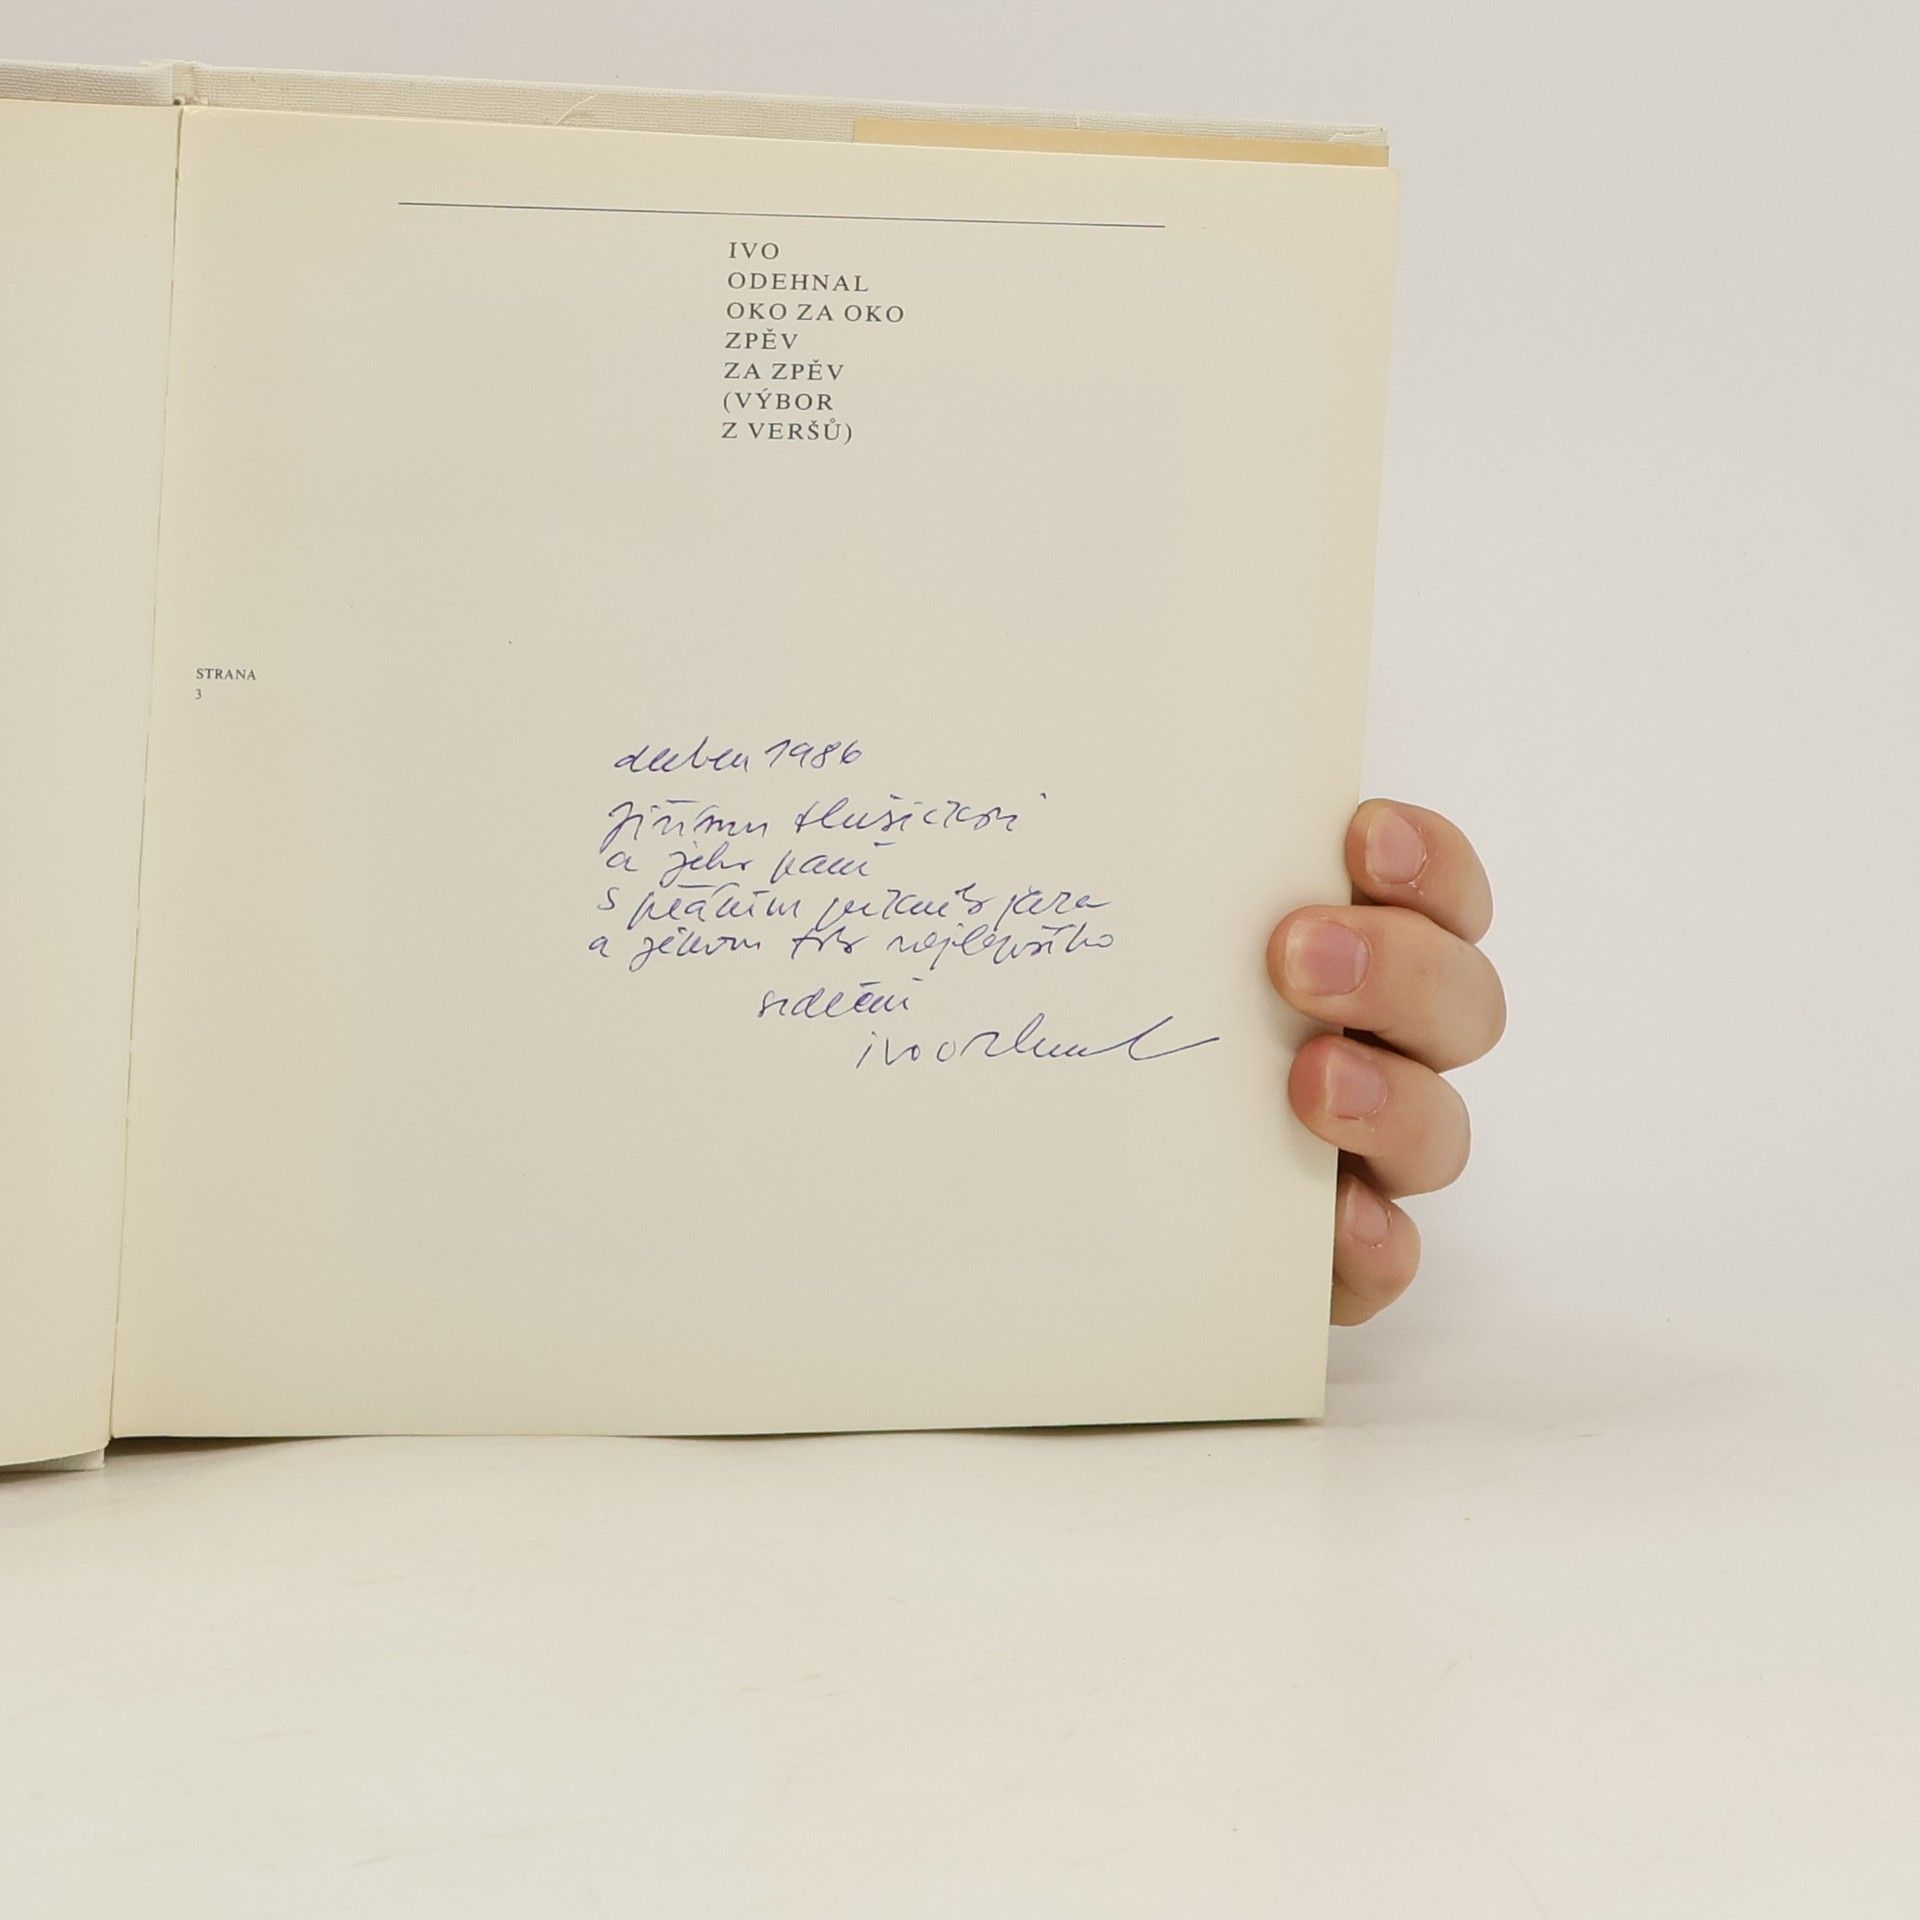 IVO
ODEHNAL
OKO ZA OKO
ZPĚV
ZA ZPĚV
(VÝBOR
Z VERŠŮ)
STRANA
3
duben 1986
Jiřímu
a jeho paní
s přáním pěkného jara
a jenom toho nejlepšího
srdečně
Ivo Odehnal